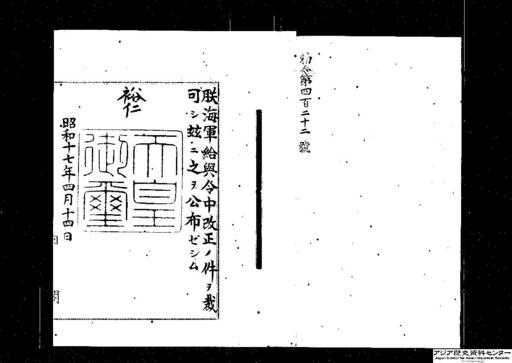 勅令第四百二十二號
朕海軍給與令中改正ノ件ヲ裁
可シ玆ニ之ヲ公布ゼシム
裕仁
天皇
御璽
昭和十七年四月十四日
内閣
アジア歴史資料センター
Japan Center for Asian Historical Records